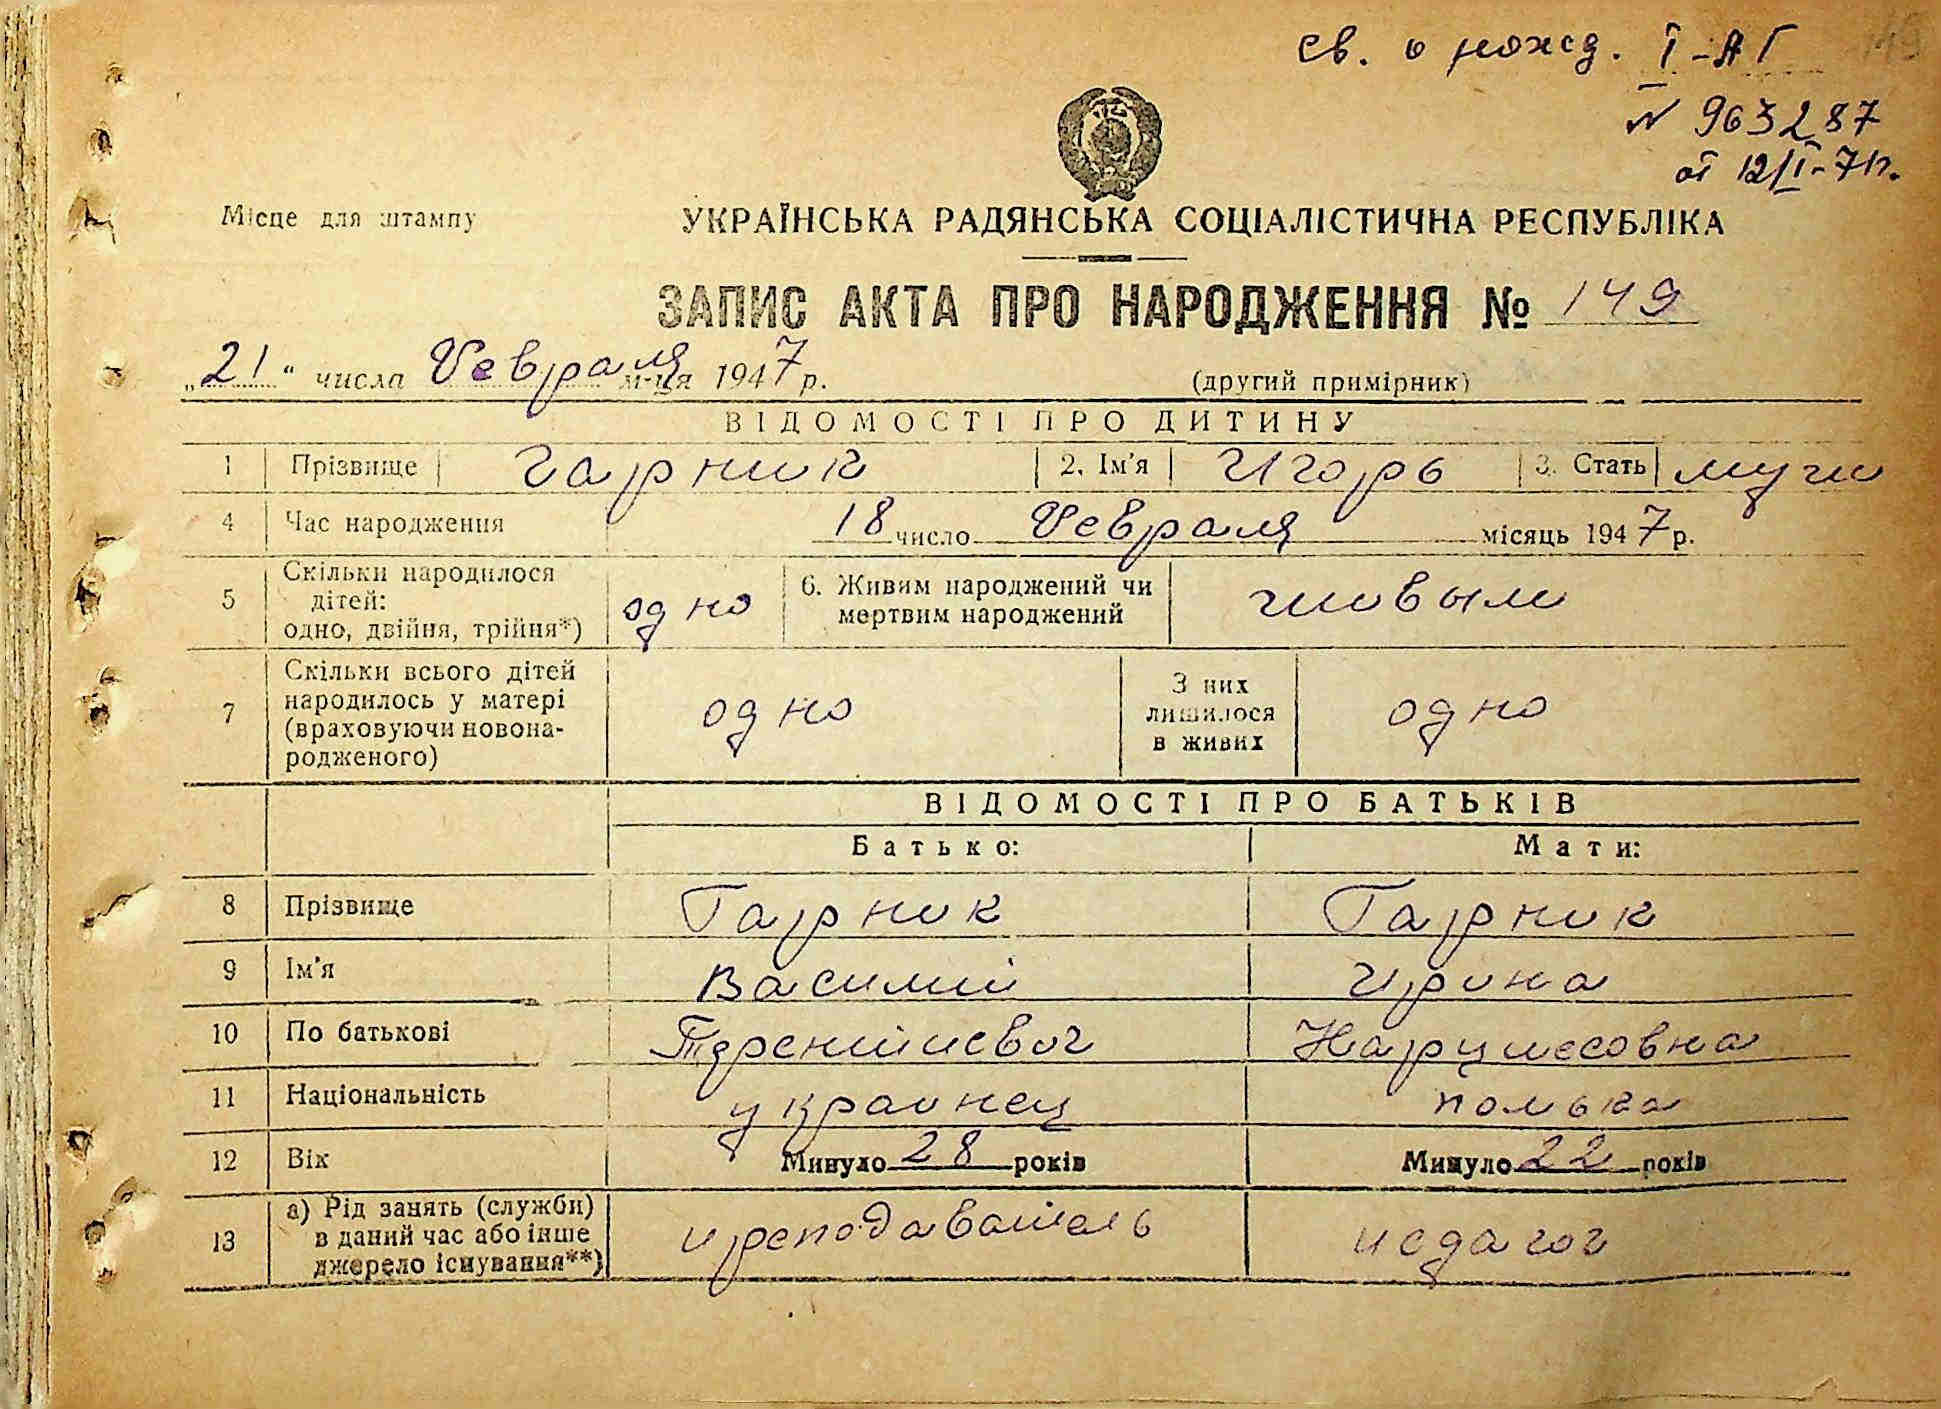 св. о рожд. I-АГ
N 963287
от 12/I-71г.
Місце для штампу
УКРАЇНСЬКА РАДЯНСЬКА СОЦІАЛІСТИЧНА РЕСПУБЛІКА
ЗАПИС АКТА ПРО НАРОДЖЕННЯ № 149
„21“ числа Февраля м-ця 1947 р.
(другий примірник)
ВІДОМОСТІ ПРО ДИТИНУ
1 Прізвище Гарник 2. Ім'я Игорь 3. Стать муж
4 Час народження 18 число Февраля місяць 1947 р.
5 Скільки народилося дітей: одно, двійня, трійня*) одно 6. Живим народжений чи мертвим народжений живым
7 Скільки всього дітей народилось у матері (враховуючи новонародженого) одно З них лишилося в живих одно
ВІДОМОСТІ ПРО БАТЬКІВ
Батько: Мати:
8 Прізвище Гарник Гарник
9 Ім'я Василий Ирина
10 По батькові Терентиевич Нарцисовна
11 Національність украинец полька
12 Вік Минуло 28 років Минуло 22 років
13 а) Рід занять (служби) в даний час або інше джерело існування**) преподаватель педагог